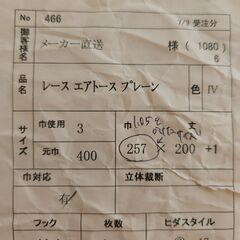 No 466 7/9 受注分
御客様名 メーカー直送 様 (1080)
6
品名 レース エアトース プレーン 色 IV
サイズ 巾使用 3 巾 丈
元巾 400 257 × 200 +1
巾対応 立体裁断
有
フック 枚数 ヒダスタイル